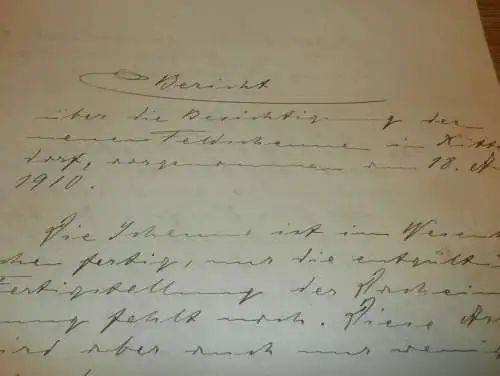 Bericht
über die Besichtigung der
neuen Feldscheune in Kitt
dorf, vorgenommen am 18. A
1910.
Die Scheune ist im Wesent
chen fertig, nur die entgülti
Fertigstellung der
nung fehlt noch. Diese Ar
wird aber auch nur weni